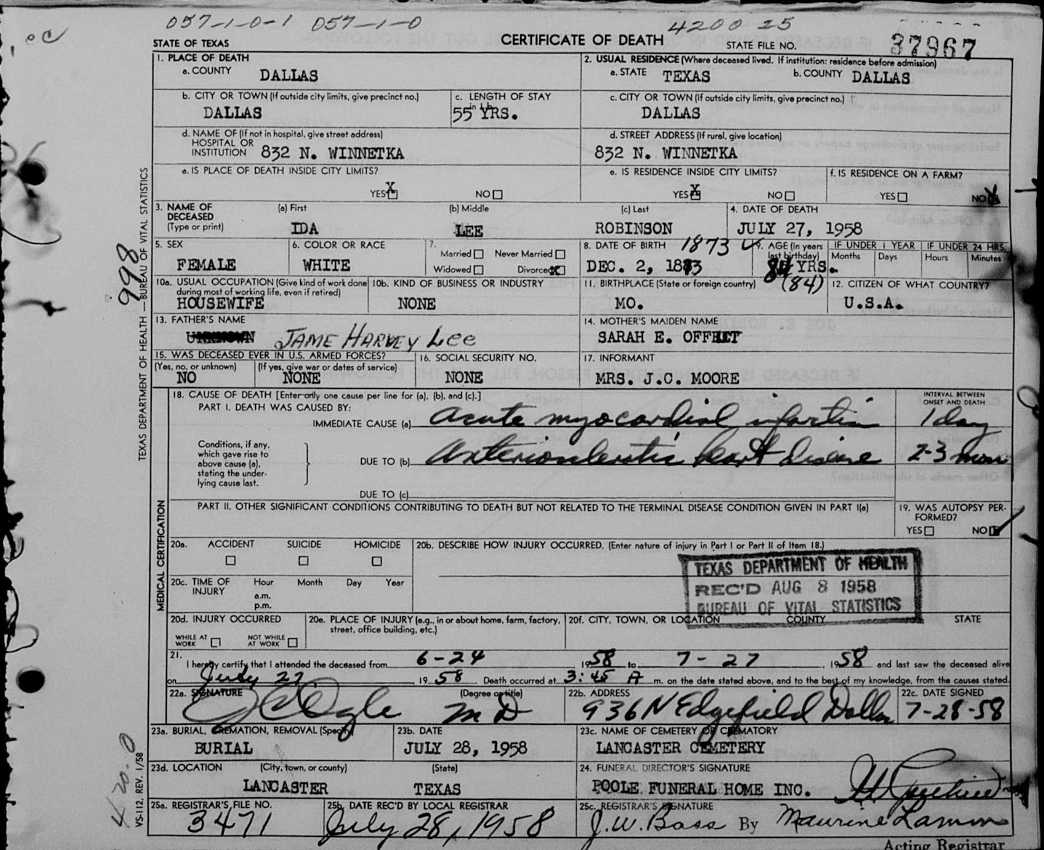 057-1-0-1 057-1-0 4200 25
STATE OF TEXAS CERTIFICATE OF DEATH STATE FILE NO. 37967
1. PLACE OF DEATH 2. USUAL RESIDENCE (Where deceased lived. If institution: residence before admission)
a. COUNTY DALLAS a. STATE TEXAS b. COUNTY DALLAS
b. CITY OR TOWN (If outside city limits, give precinct no.) c. LENGTH OF STAY c. CITY OR TOWN (If outside city limits, give precinct no.)
DALLAS 55 YRS. DALLAS
d. NAME OF (If not in hospital, give street address) d. STREET ADDRESS (If rural, give location)
HOSPITAL OR
INSTITUTION 832 N. WINNETKA 832 N. WINNETKA
e. IS PLACE OF DEATH INSIDE CITY LIMITS? e. IS RESIDENCE INSIDE CITY LIMITS? f. IS RESIDENCE ON A FARM?
YES X NO YES X NO YES NO X
3. NAME OF (a) First (b) Middle (c) Last 4. DATE OF DEATH
DECEASED
(Type or print) IDA LEE ROBINSON JULY 27, 1958
5. SEX 6. COLOR OR RACE 7. Married Never Married 8. DATE OF BIRTH 1873 9. AGE (In years last birthday) IF UNDER 1 YEAR IF UNDER 24 HRS.
Months Days Hours Minutes
FEMALE WHITE Widowed Divorced X DEC. 2, 1873 84 YRS.
(84)
10a. USUAL OCCUPATION (Give kind of work done 10b. KIND OF BUSINESS OR INDUSTRY 11. BIRTHPLACE (State or foreign country) 12. CITIZEN OF WHAT COUNTRY?
during most of working life, even if retired)
HOUSEWIFE NONE MO. U.S.A.
13. FATHER'S NAME 14. MOTHER'S MAIDEN NAME
UNKNOWN JAME HARVEY Lee SARAH E. OFFETT
15. WAS DECEASED EVER IN U.S. ARMED FORCES? 16. SOCIAL SECURITY NO. 17. INFORMANT
(Yes, no, or unknown) (If yes, give war or dates of service)
NO NONE NONE MRS. J.C. MOORE
18. CAUSE OF DEATH [Enter only one cause per line for (a), (b), and (c).] INTERVAL BETWEEN
ONSET AND DEATH
PART I. DEATH WAS CAUSED BY:
IMMEDIATE CAUSE (a) Acute myocardial infarction 1 day
Conditions, if any,
which gave rise to
above cause (a),
stating the under-
lying cause last.
DUE TO (b) Arteriosclerotic heart disease 2-3 mon
DUE TO (c)
PART II. OTHER SIGNIFICANT CONDITIONS CONTRIBUTING TO DEATH BUT NOT RELATED TO THE TERMINAL DISEASE CONDITION GIVEN IN PART I(a) 19. WAS AUTOPSY PER-
FORMED?
YES NO
20a. ACCIDENT SUICIDE HOMICIDE 20b. DESCRIBE HOW INJURY OCCURRED. (Enter nature of injury in Part I or Part II of Item 18.)
20c. TIME OF INJURY Hour Month Day Year
a.m.
p.m.
TEXAS DEPARTMENT OF HEALTH
REC'D AUG 8 1958
BUREAU OF VITAL STATISTICS
20d. INJURY OCCURRED 20e. PLACE OF INJURY (e.g., in or about home, farm, factory, 20f. CITY, TOWN, OR LOCATION COUNTY STATE
street, office building, etc.)
WHILE AT WORK NOT WHILE AT WORK
21. I hereby certify that I attended the deceased from 6-24 1958 to 7-27, 1958 and last saw the deceased alive
on July 27 1958 Death occurred at 3:45 A m. on the date stated above, and to the best of my knowledge, from the causes stated.
22a. SIGNATURE (Degree or title) 22b. ADDRESS 22c. DATE SIGNED
Ogle MD 936 N Edgefield Dallas 7-28-58
23a. BURIAL, CREMATION, REMOVAL (Specify) 23b. DATE 23c. NAME OF CEMETERY OR CREMATORY
BURIAL JULY 28, 1958 LANCASTER CEMETERY
23d. LOCATION (City, town, or county) (State) 24. FUNERAL DIRECTOR'S SIGNATURE
LANCASTER TEXAS POOLE FUNERAL HOME INC.
25a. REGISTRAR'S FILE NO. 25b. DATE REC'D BY LOCAL REGISTRAR 25c. REGISTRAR'S SIGNATURE
3471 July 28, 1958 J.W. Bass By Maurine Lamm
Acting Registrar
TEXAS DEPARTMENT OF HEALTH — BUREAU OF VITAL STATISTICS
998
MEDICAL CERTIFICATION
VS-112. REV. 1/58
420.0